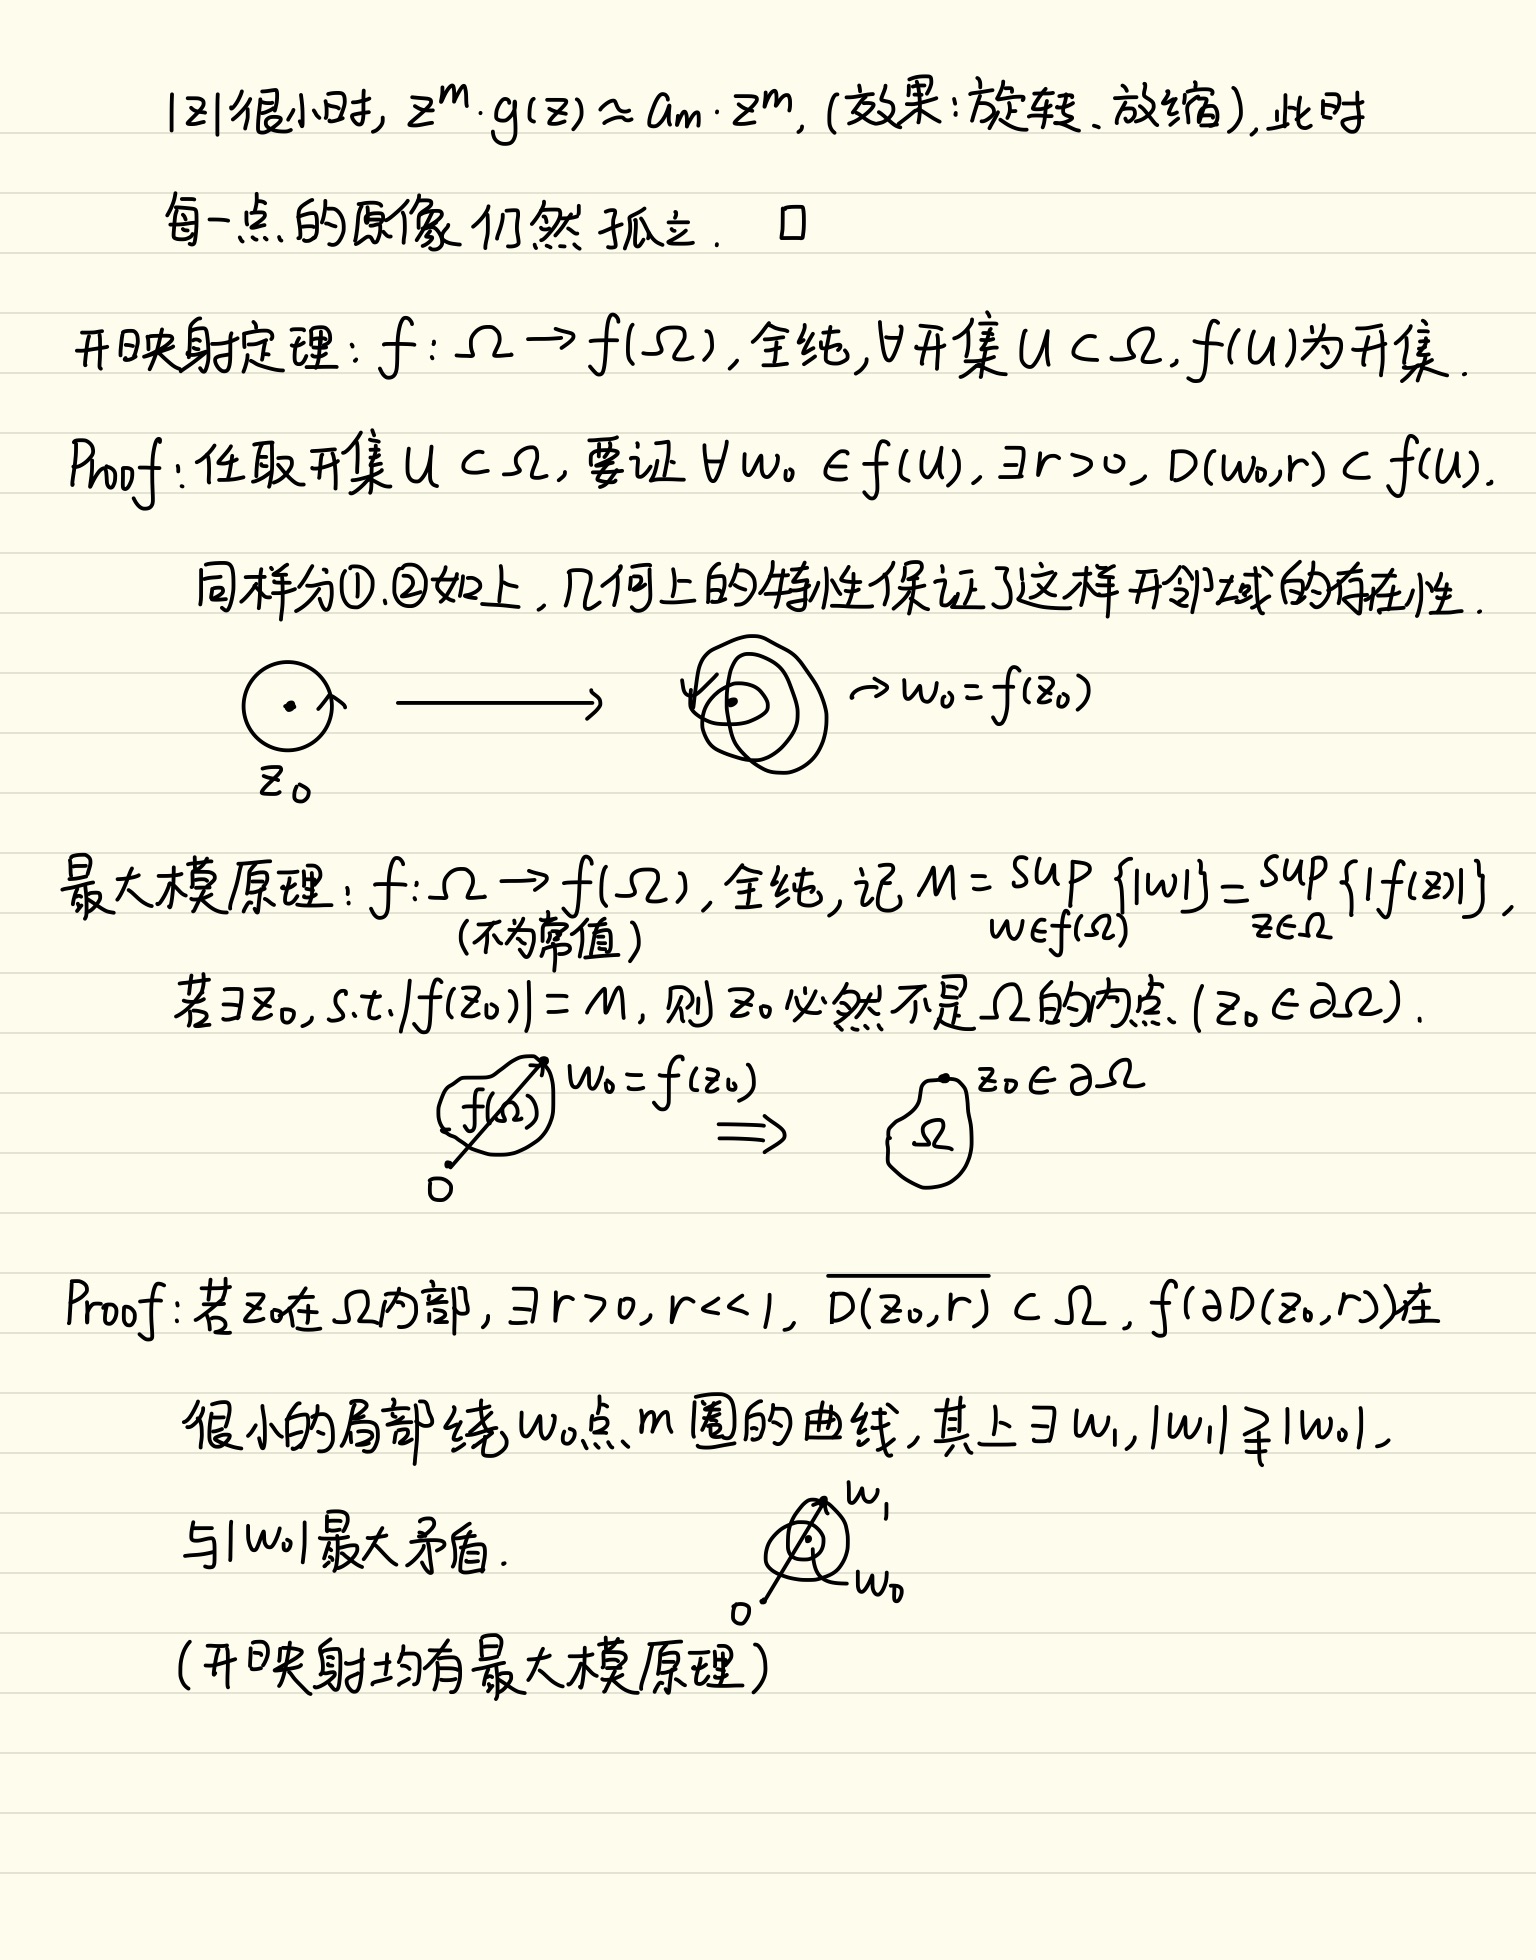 |z|很小时, z^m·g(z)≈a_m·z^m, (效果:旋转、放缩), 此时
每一点的原像仍然孤立. □
开映射定理: f: Ω→f(Ω), 全纯, ∀开集U⊂Ω, f(U)为开集.
Proof: 任取开集U⊂Ω, 要证∀w₀∈f(U), ∃r>0, D(w₀,r)⊂f(U).
同样分①.②如上, 几何上的特性保证了这样开邻域的存在性.
→w₀=f(z₀)
z₀
最大模原理: f: Ω→f(Ω), 全纯, 记M=sup{|w|}=sup{|f(z)|},
(不为常值) w∈f(Ω) z∈Ω
若∃z₀, s.t.|f(z₀)|=M, 则z₀必然不是Ω的内点(z₀∈∂Ω).
w₀=f(z₀) z₀∈∂Ω
f(Ω) ⇒ Ω
0
Proof: 若z₀在Ω内部, ∃r>0, r<<1, \overline{D(z₀,r)}⊂Ω, f(∂D(z₀,r))在
很小的局部绕w₀点m圈的曲线, 其上∃w₁, |w₁|≩|w₀|,
w₁
与|w₀|最大矛盾.
w₀
0
(开映射均有最大模原理)